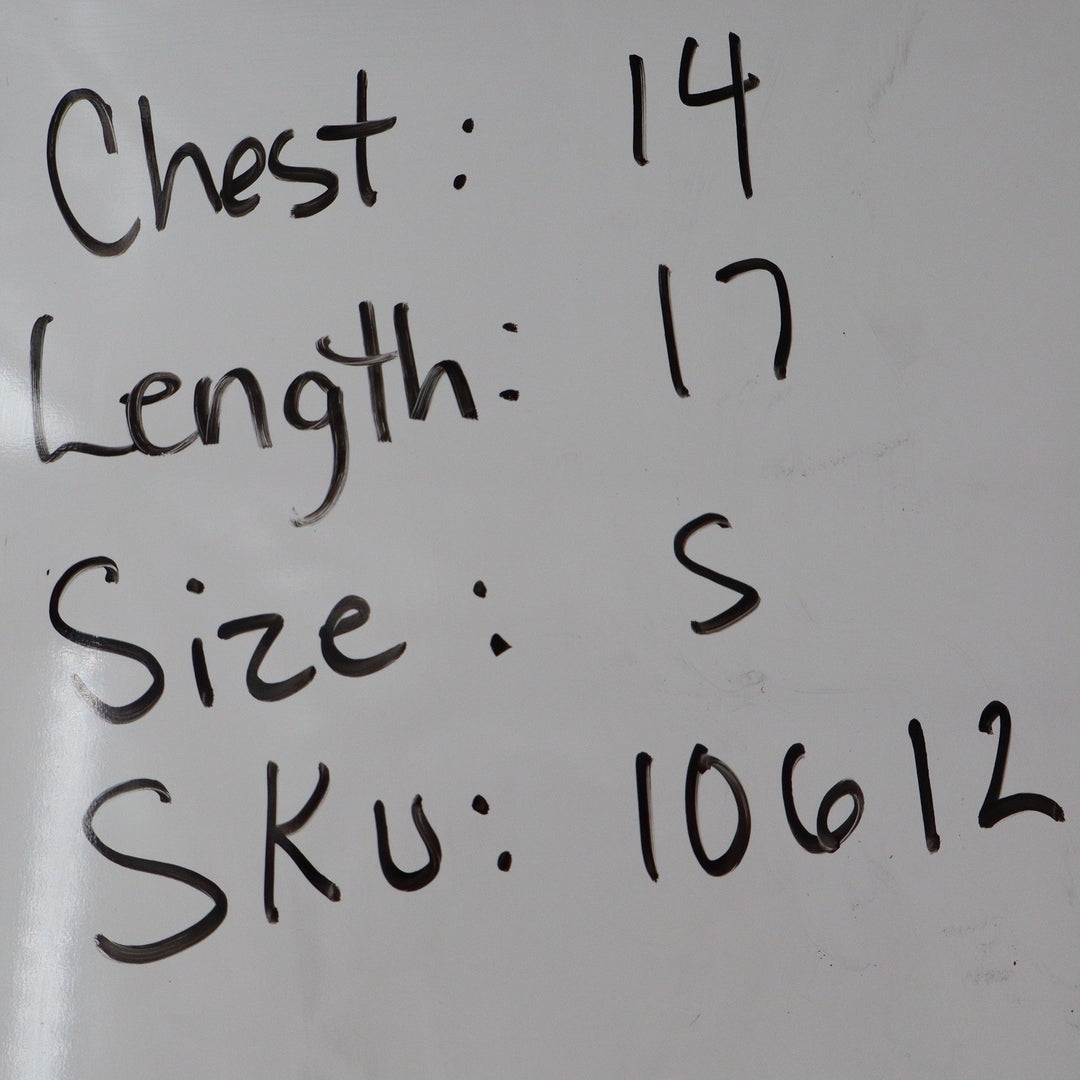 Chest: 14
Length: 17
Size: S
SKU: 10612